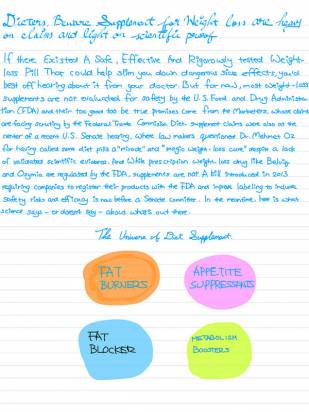 Dieters, Beware Supplement for Weight loss are heavy
on claims and light on scientific proof
If there Existed A Safe, Effective And Rigorously tested Weight-
loss Pill That could help slim you down dangerous side effects, you'd
best off hearing about it from your doctor. But for now, most weight-loss
supplements are not evaluated for safety by the U.S. Food and Drug Administra-
tion (FDA) and their too good too be true promises come from the Marketers, whose claims
are facing scrutiny by the Federal Trade Commission. Diet- Supplement claims were also at the
center of a recent U.S. Senate hearing, where law makers questioned Dr. Mehmet Oz
for having called some diet pills a "miracle" and "magic weight- loss cure," despite a lack
of validated scientific evidence. And While prescription weight- loss drug like Belviq
and Qsymia are regulated by the FDA, supplements are not. A bill introduced in 2013
requiring companies to register their products with the FDA and improve labeling to include
safety risks and efficacy is now before a Senate committee. In the meantime, here is what
science says - or doesnt say - about whats out there.
The Universe of Diet Supplement.
FAT
BURNERS
APPETITE
SUPPRESSENTS
FAT
BLOCKER
METABOLISM
BOOSTERS